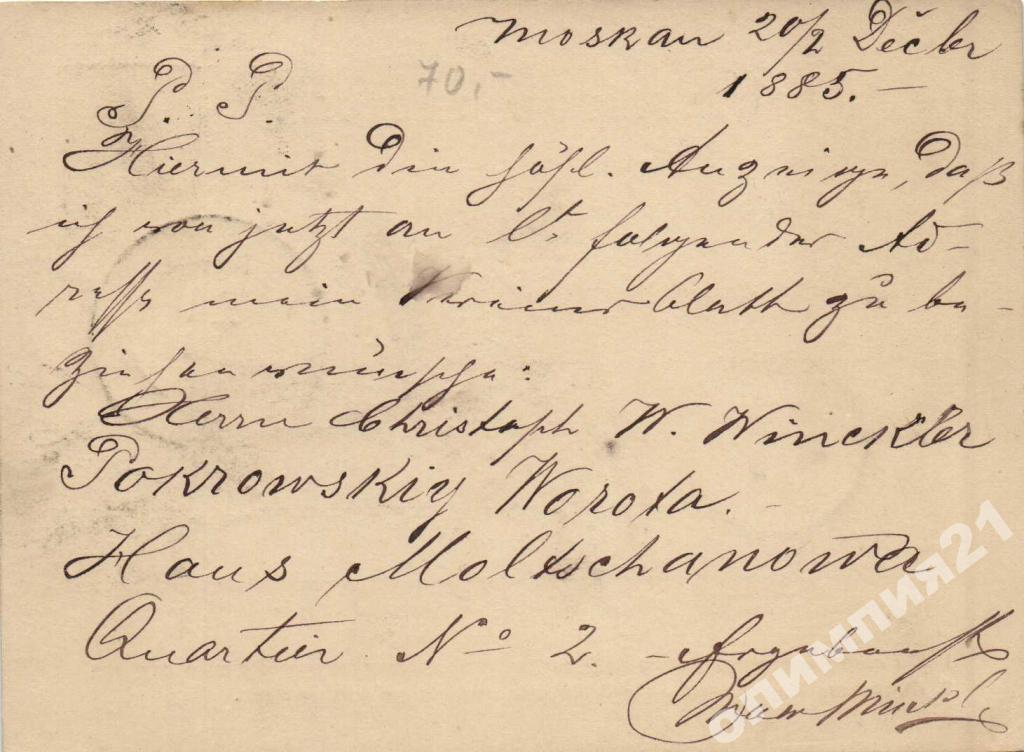 Moskau 20/2 Decbr
1885.–
70,–
P. P.
Hiermit die höfl. Anzeige, daß
ich von jetzt an lt. folgender Ad-
resse mein Vereinsblatt zu be-
ziehen wünsche:
Herrn Christoph W. Winckler
Pokrowskiy Worota.–
Haus Moltschanowa
Quartier No 2. – Ergebenst
олимпия21